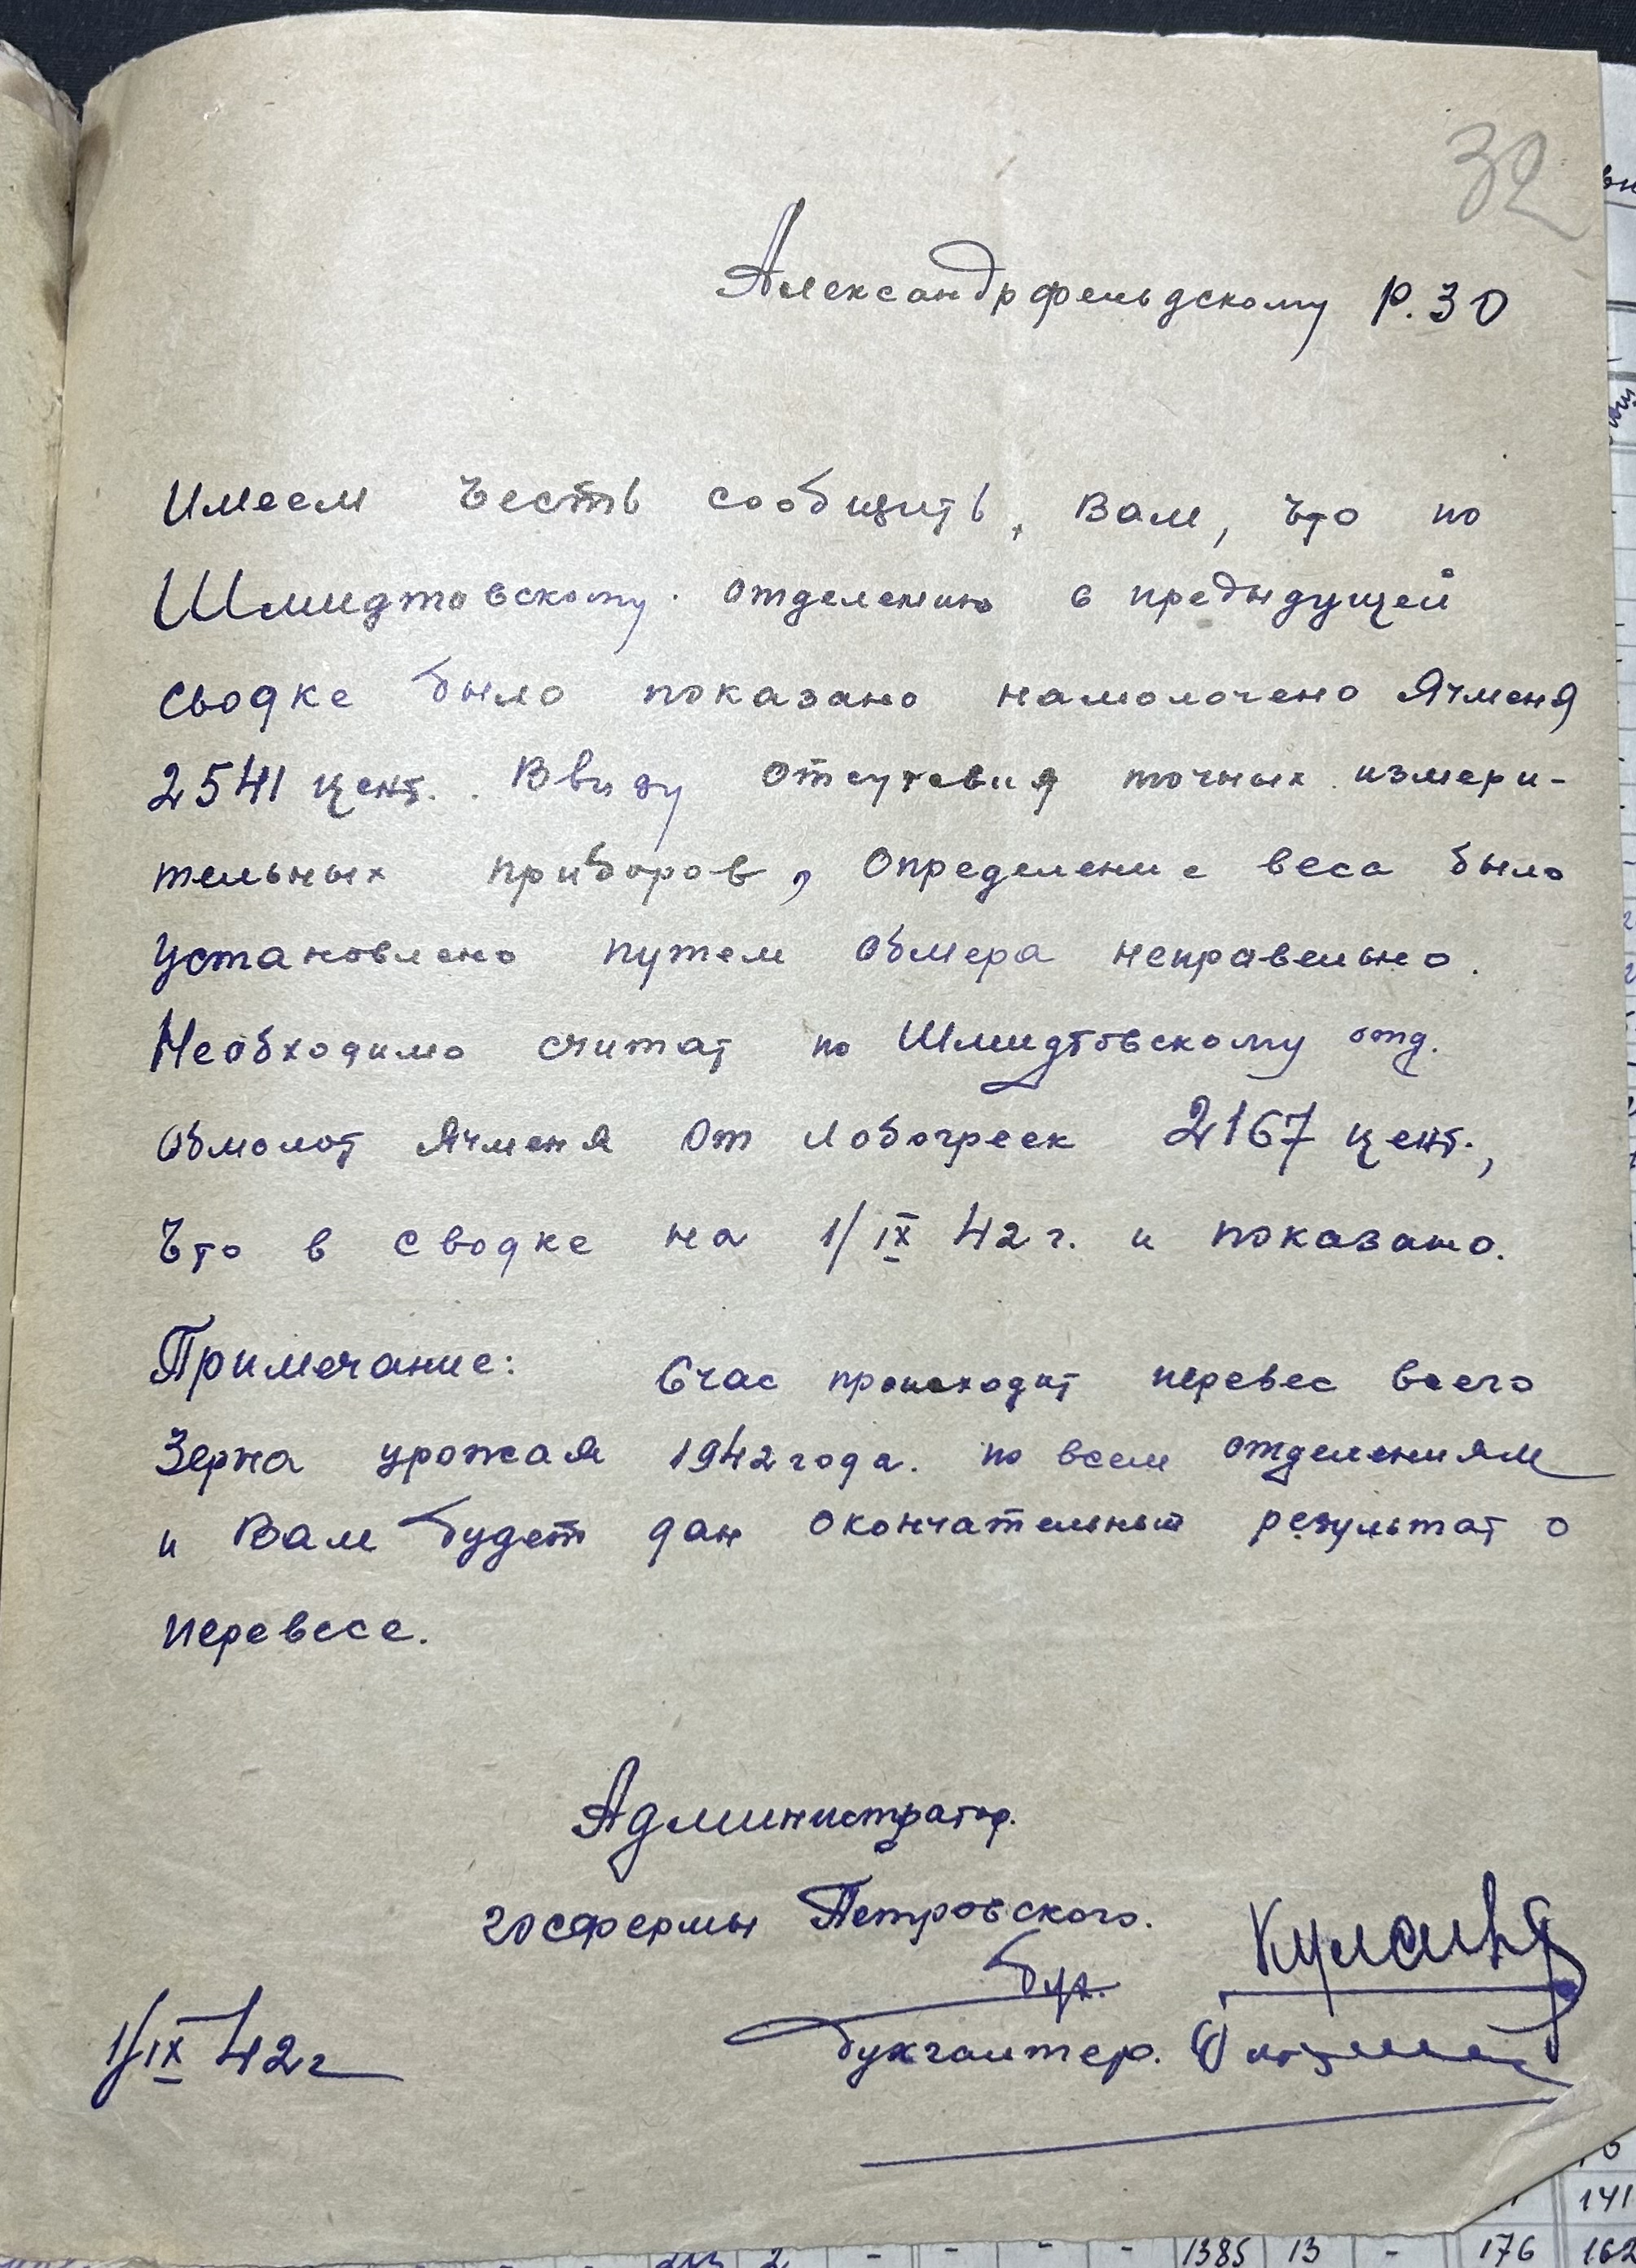 32
Александрфельдскому Р.З О
Имеем Честь сообщить, Вам, Что по
Шмидтовскому отделению в предыдущей
сводке было показано намолочено Ячменя
2541 цент. Ввиду отсутсвия точных измери-
тельных приборов, определение веса было
установлено путем обмера неправельно.
Необходимо считат по Шмидтовскому отд.
обмолот Ячменя От лобогреек 2167 цент.,
Что в сводке на 1/IX 42 г. и показано.
Примечание: Счас происходит перевес всего
Зерна урожая 1942 года. по всем отделениям
и Вам будет дан окончательный результат о
перевесе.
Администратор.
госфермы Петровского.
Бух.
1/IX 42 г
Бухгалтер.
1385 13 - 176
141